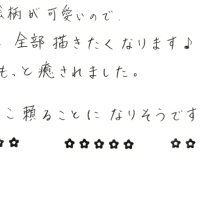 絵柄が可愛いので、
全部描きたくなります♪
もっと癒されました。
こ頼ることになりそうです
✿✿ ✿✿✿✿✿ ✿✿